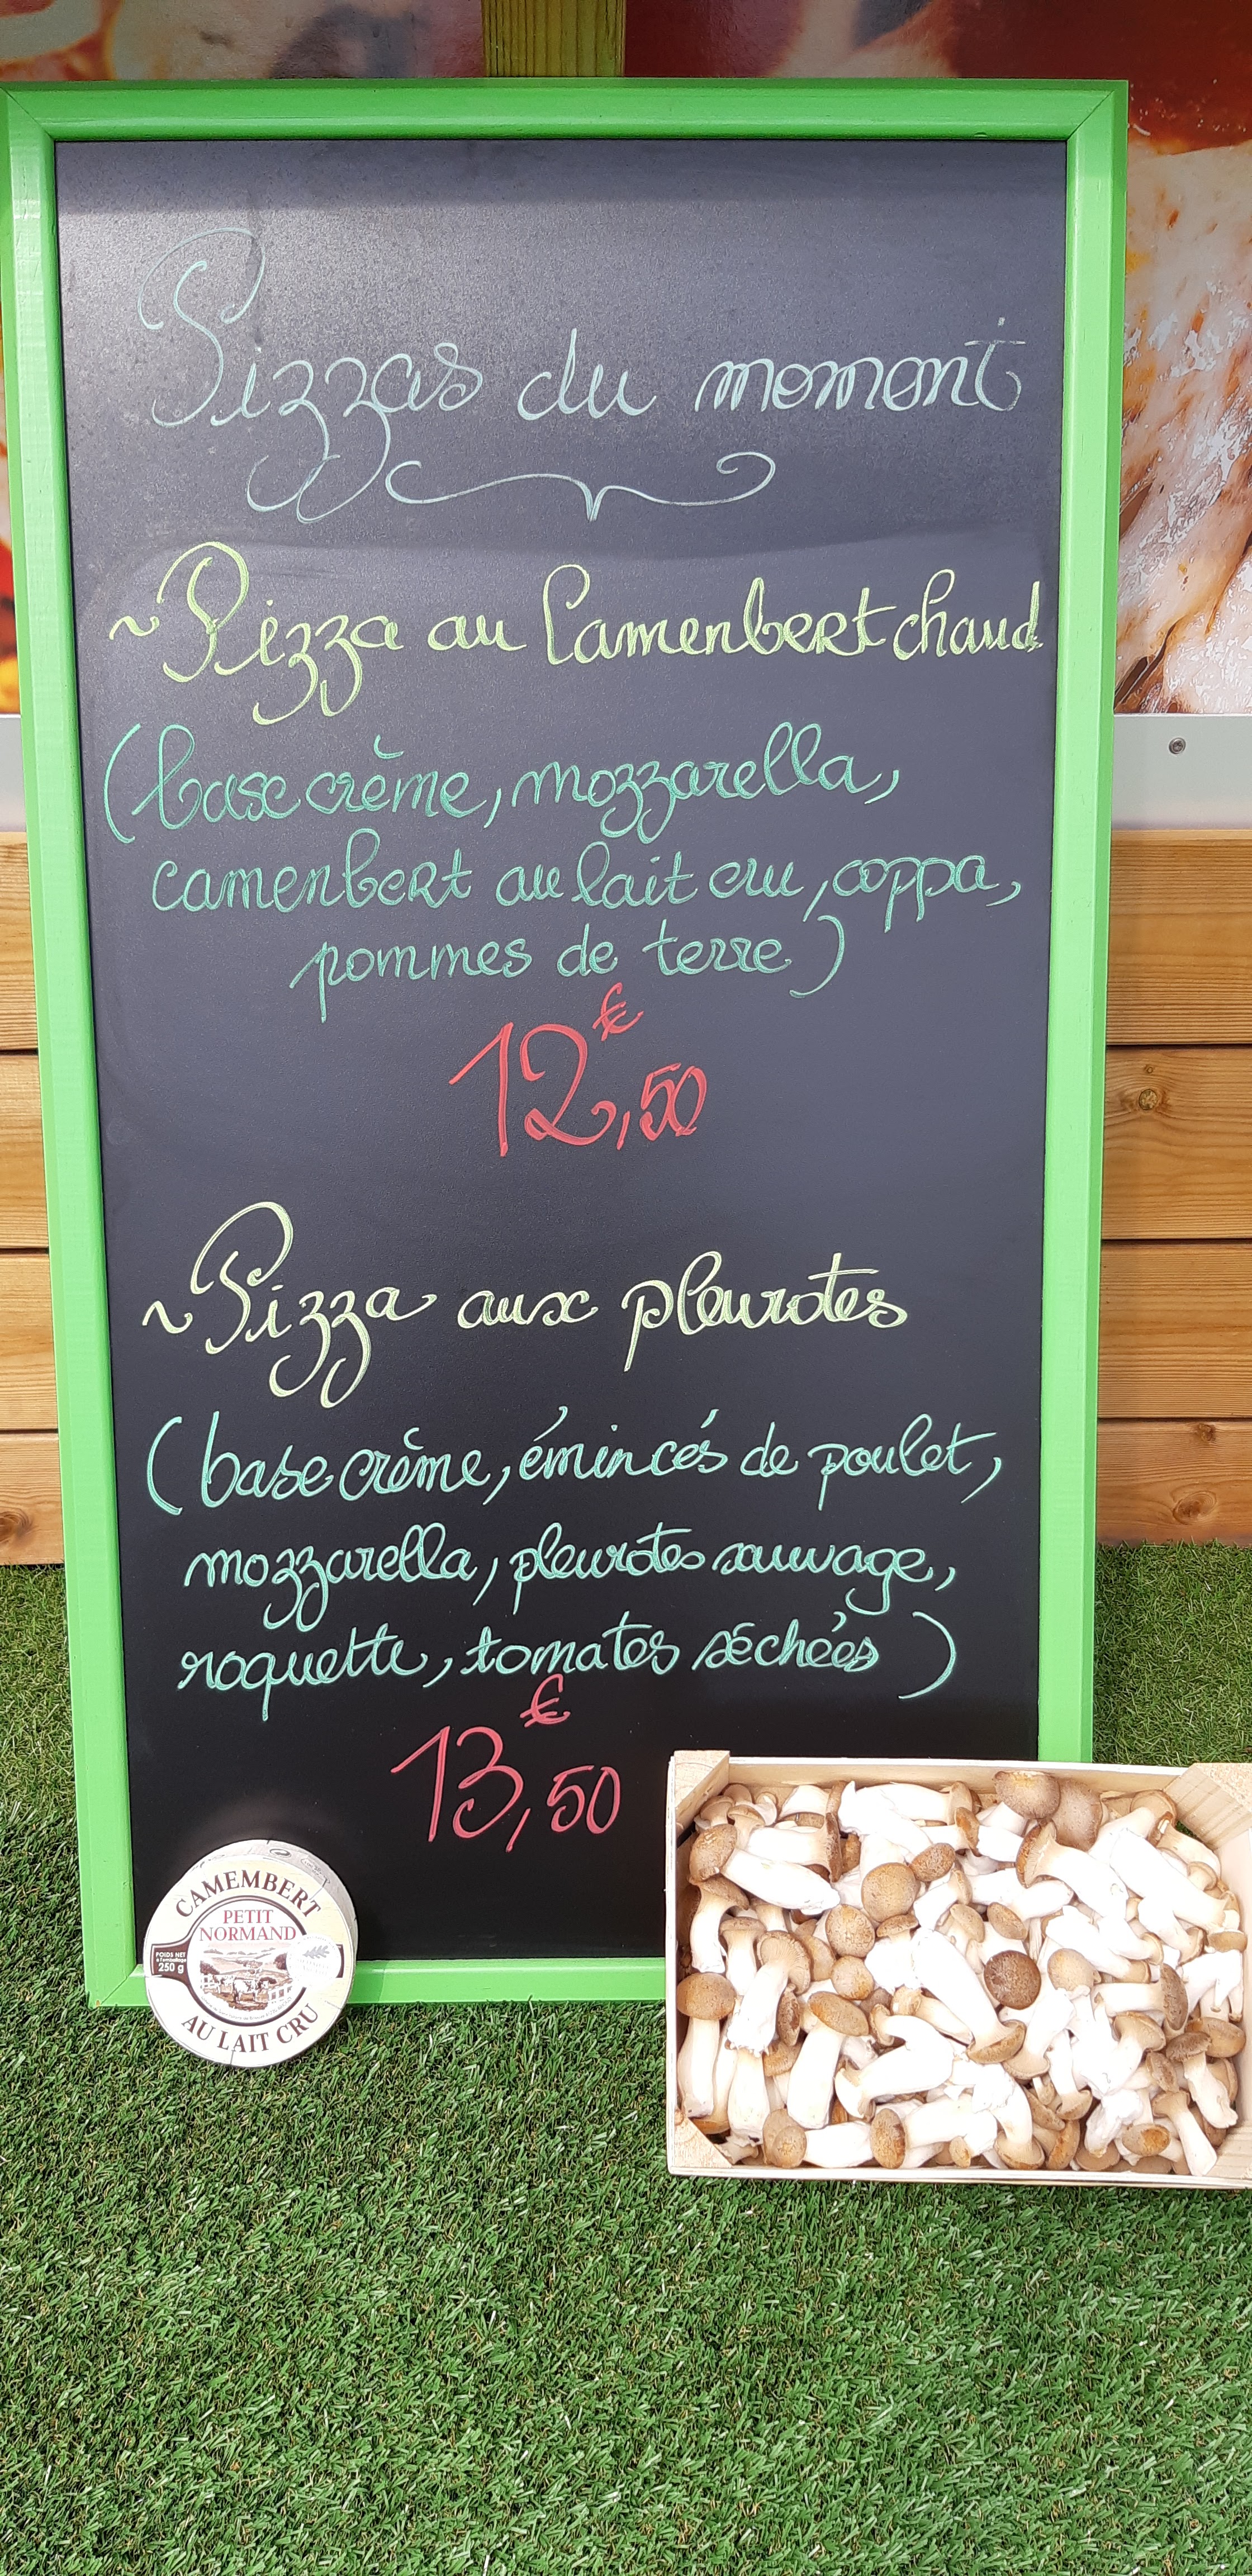 Pizzas du moment
~ Pizza au Camenbert chaud
(base crème, mozzarella,
camenbert au lait cru, coppa,
pommes de terre)
12,50 €
~ Pizza aux pleurotes
(base crème, émincés de poulet,
mozzarella, pleurotes sauvage,
roquette, tomates séchées)
13,50 €
CAMEMBERT
PETIT
NORMAND
POIDS NET
250 g
AU LAIT CRU